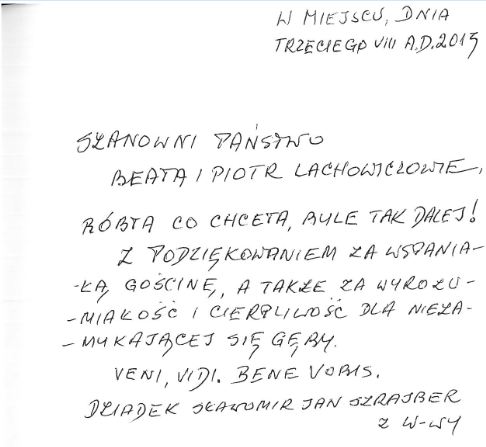 W MIEJSCU, DNIA
TRZECIEGO VIII A.D. 2013
SZANOWNI PAŃSTWO
BEATA I PIOTR LACHOWICZOWIE,
RÓBTA CO CHCETA, BYLE TAK DALEJ!
Z PODZIĘKOWANIEM ZA WSPANIA-
-ŁĄ GOŚCINĘ, A TAKŻE ZA WYROZU-
-MIAŁOŚĆ I CIERPLIWOŚĆ DLA NIEZA-
-MYKAJĄCEJ SIĘ GĘBY.
VENI, VIDI. BENE VOBIS.
DZIADEK SŁAWOMIR JAN SZRAJBER
Z W-WY